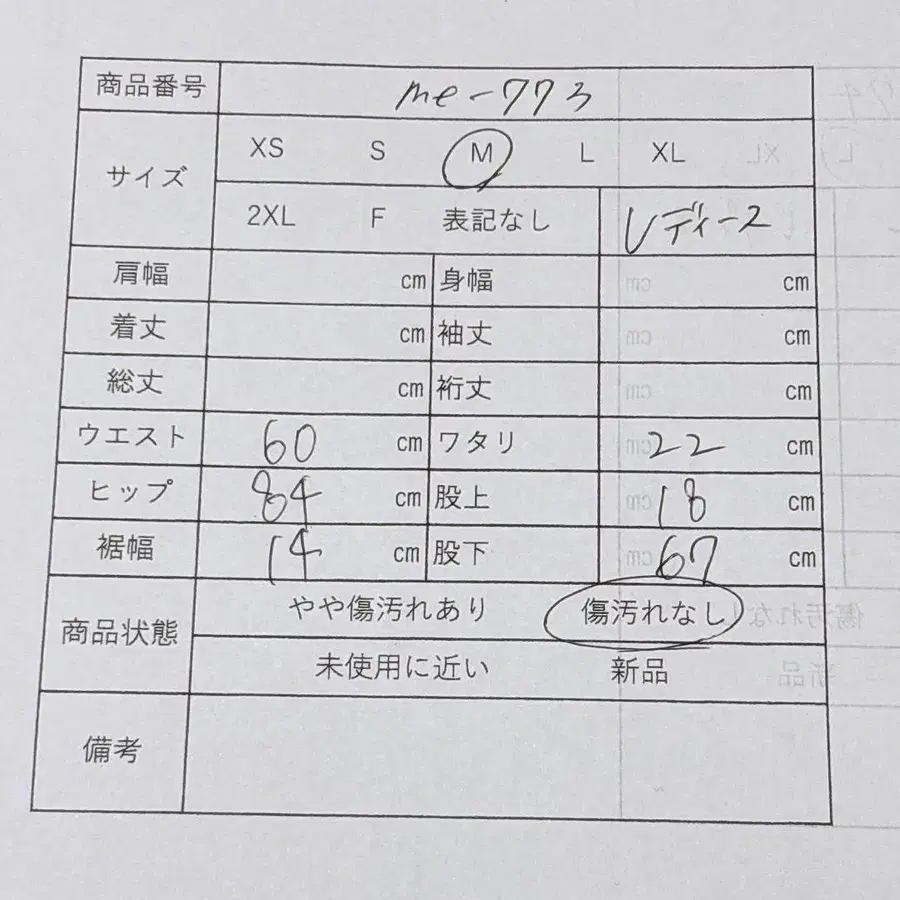 商品番号 me-773
サイズ XS S M L XL
2XL F 表記なし レディース
肩幅 cm 身幅 cm
着丈 cm 袖丈 cm
総丈 cm 裄丈 cm
ウエスト 60 cm ワタリ 22 cm
ヒップ 84 cm 股上 18 cm
裾幅 14 cm 股下 67 cm
商品状態 やや傷汚れあり 傷汚れなし
未使用に近い 新品
備考